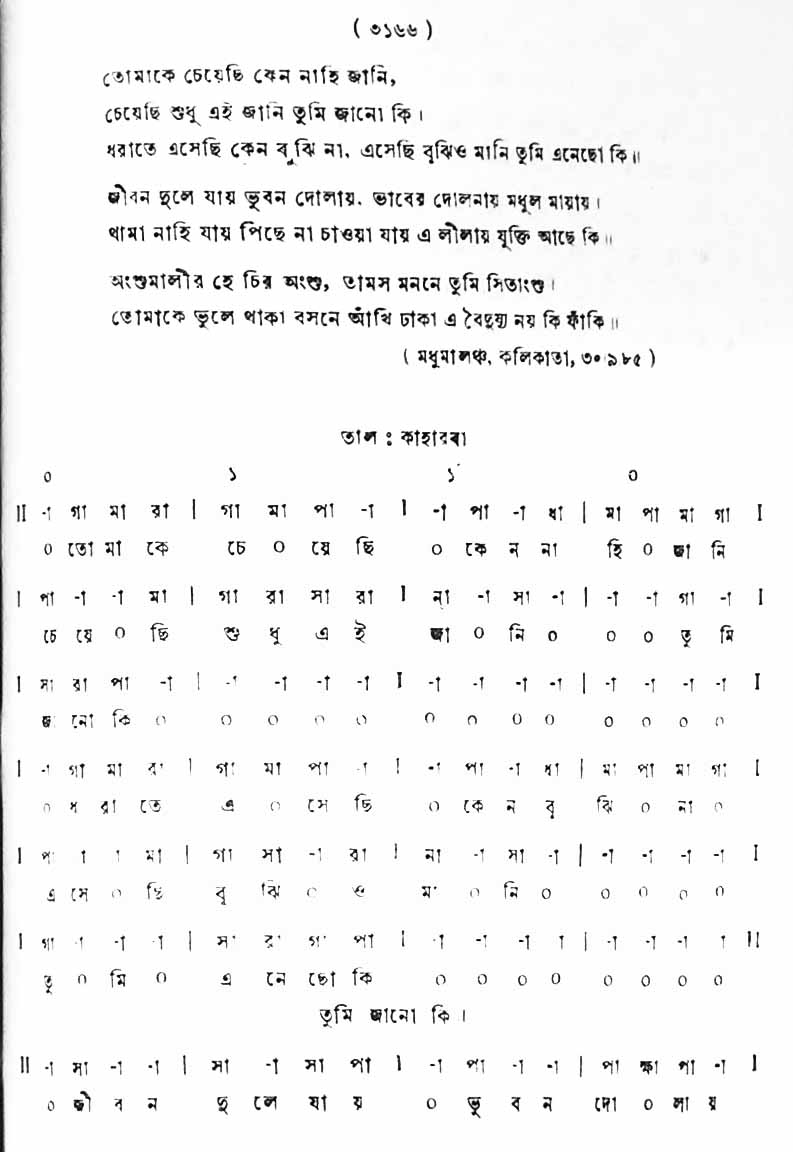 ( ৩১৬৬ )
তোমাকে চেয়েছি কেন নাহি জানি,
চেয়েছি শুধু এই জানি তুমি জানো কি ।
ধরাতে এসেছি কেন বুঝি না, এসেছি বুঝিও মানি তুমি এনেছো কি ॥
জীবন দুলে যায় ভুবন দোলায়, ভাবের দোলনায় মধুল মায়ায় ।
থামা নাহি যায় পিছে না চাওয়া যায় এ লীলায় যুক্তি আছে কি ॥
অংশুমালীর হে চির অংশু, তামস মননে তুমি সিতাংশু ।
তোমাকে ভুলে থাকা বসনে আঁখি ঢাকা এ বৈদুষ্য নয় কি ফাঁকি ॥
( মধুমালঞ্চ, কলিকাতা, ৩০.৯.৮৫ )
তাল : কাহারবা
০ ১ ১´ ০
II -া গা মা রা | গা মা পা -া I -া পা -া ধা | মা পা মা গা I
০ তো মা কে চে ০ য়ে ছি ০ কে ন না হি ০ জা নি
| পা -া -া মা | গা রা সা রা I না্ -া সা -া | -া -া গা -া I
চে য়ে ০ ছি শু ধু এ ই জা ০ নি ০ ০ ০ তু মি
| সা রা পা -া | -া -া -া -া I -া -া -া -া | -া -া -া -া I
জা নো কি ০ ০ ০ ০ ০ ০ ০ ০ ০ ০ ০ ০ ০
I -া গা মা রা | গা মা পা -া I -া পা -া ধা | মা পা মা গা I
০ ধ রা তে এ ০ সে ছি ০ কে ন বু ঝি ০ না ০
I পা -া -া মা | গা সা -া রা I না -া সা -া | -া -া -া -া I
এ সে ০ ছি বু ঝি ০ ও মা ০ নি ০ ০ ০ ০ ০
I গা -া -া -া | সা রা গা পা I -া -া -া -া | -া -া -া -া II
তু ০ মি ০ এ নে ছো কি ০ ০ ০ ০ ০ ০ ০ ০
তুমি জানো কি ।
II -া সা -া -া | সা -া সা পা I -া পা -া -া | পা ক্ষা পা -া I
০ জী ব ন দু লে যা য় ০ ভু ব ন দো ০ লা য়